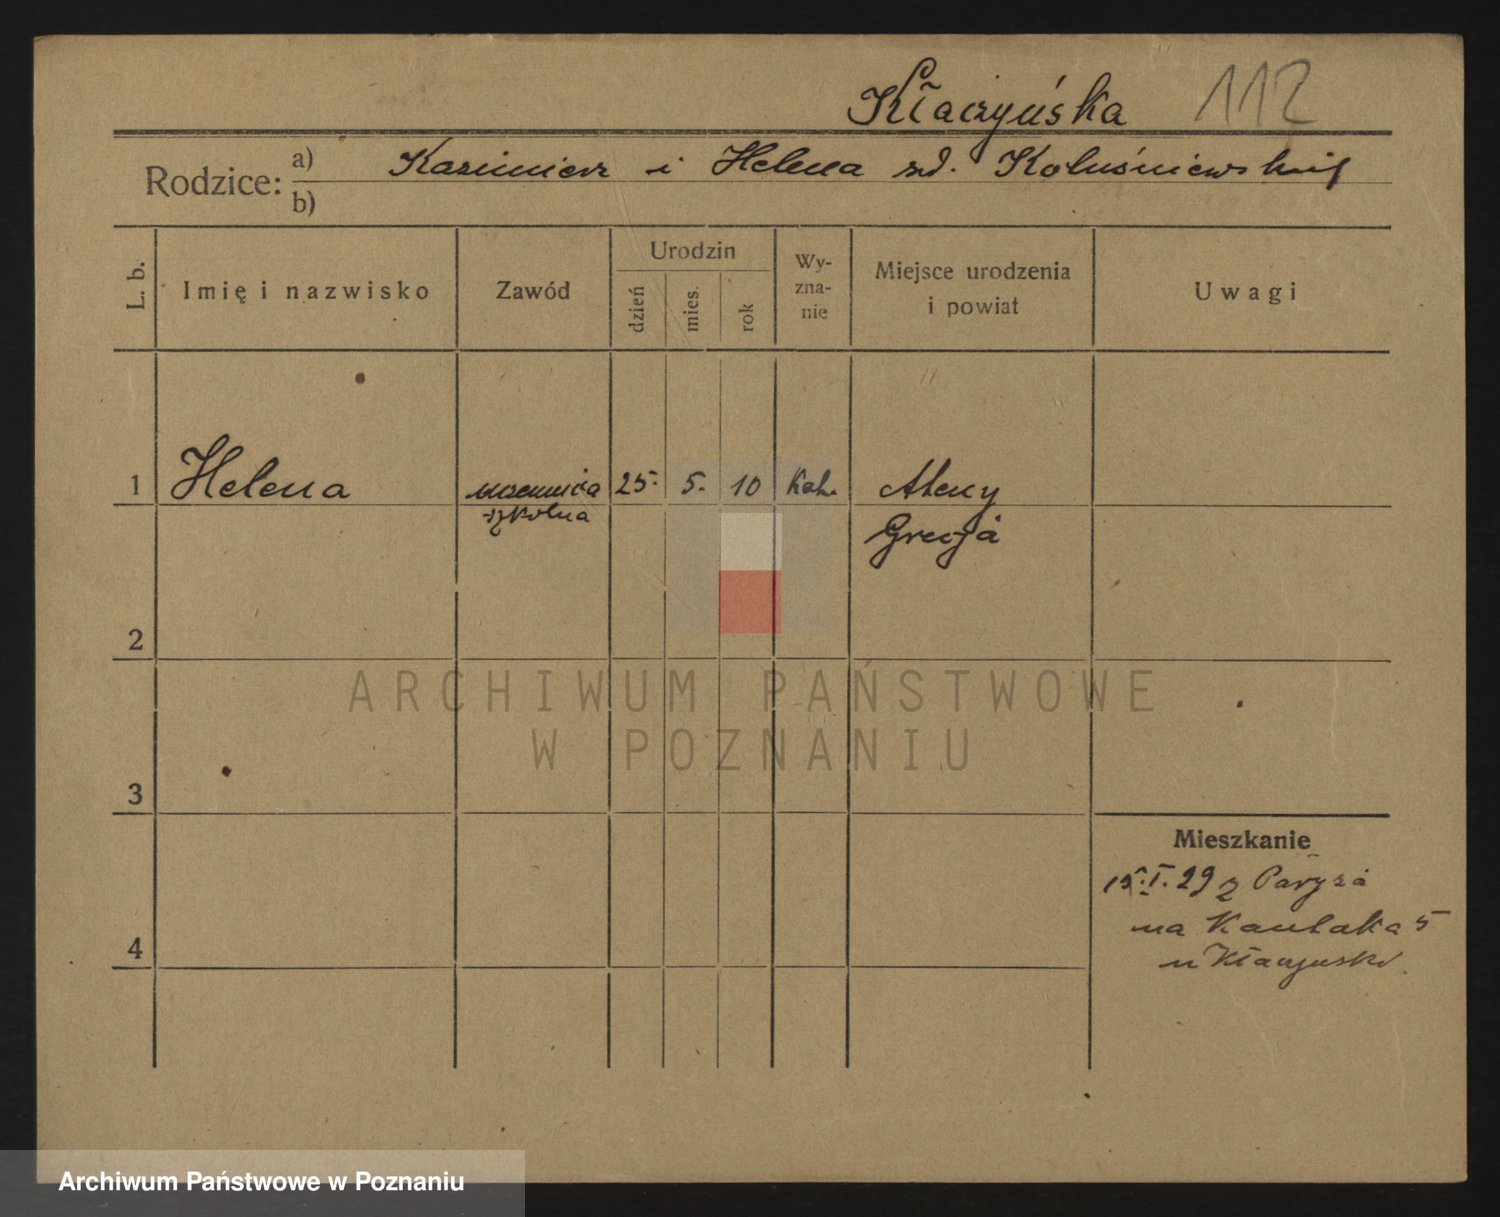 Kłaczyńska 112
Rodzice: a) Kazimierz i Helena zd. Koluśniewskij
b)
L. b. Imię i nazwisko Zawód Urodzin dzień mies. rok Wyznanie Miejsce urodzenia i powiat Uwagi
1 Helena uczennica 25. 5. 10 Kat. Ateny
szkolna Grecja
2
3
Mieszkanie
15.I.29 z Paryża
na Kantaka 5
4
u Kłaczyński
ARCHIWUM PAŃSTWOWE
W POZNANIU
Archiwum Państwowe w Poznaniu